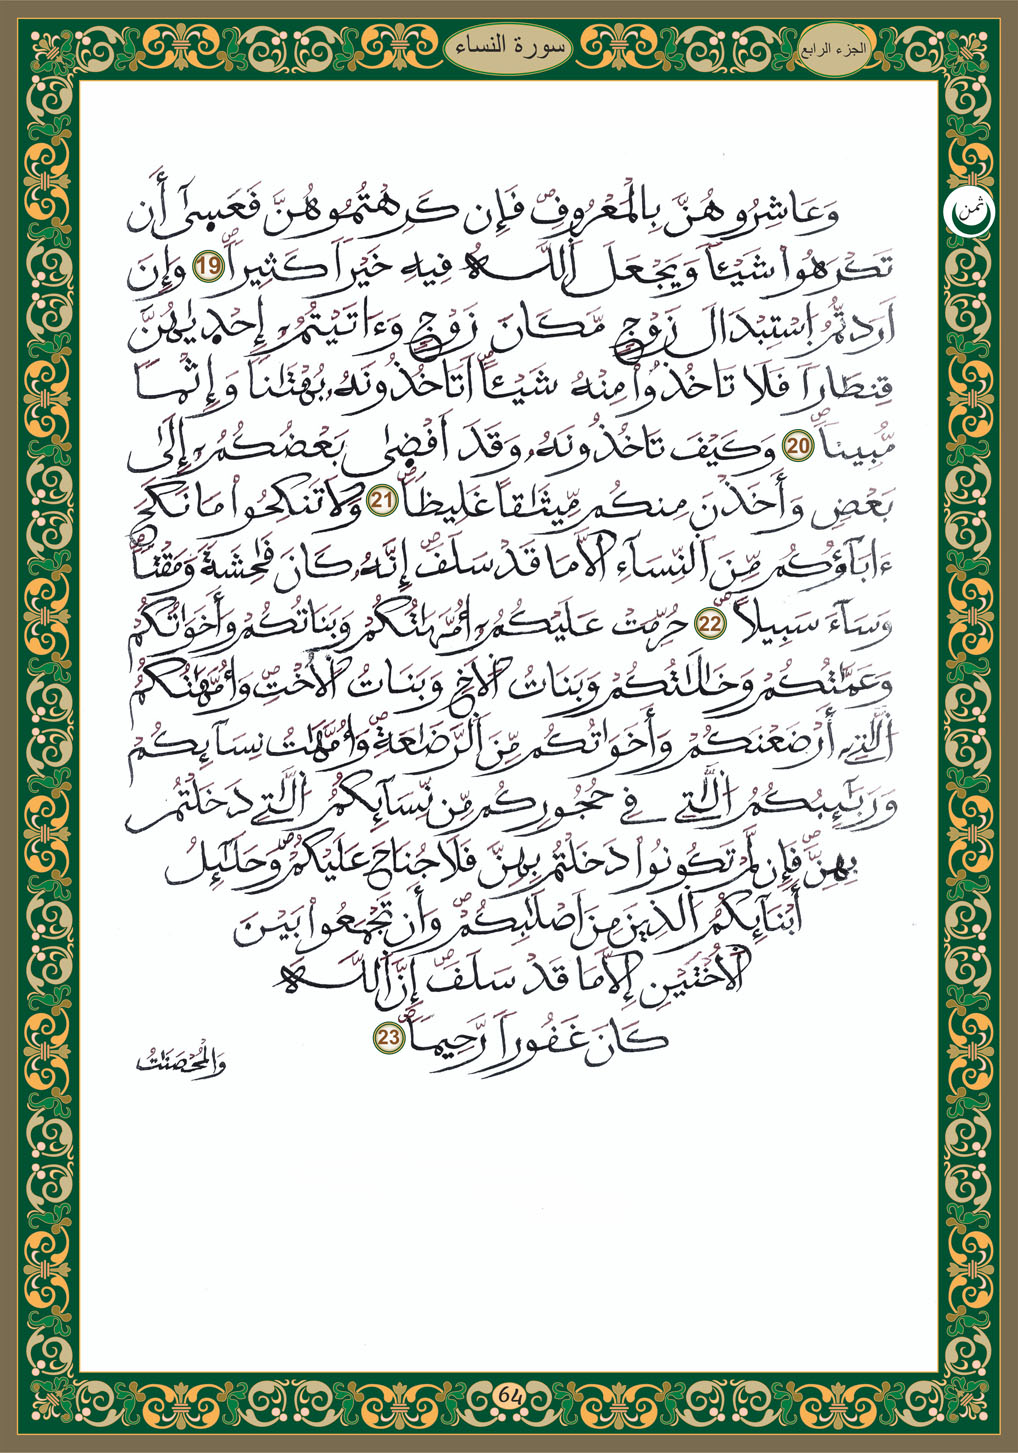 سورة النساء
الجزء الرابع
ثمن
وَعَاشِرُوهُنَّ بِالْمَعْرُوفِ فَإِن كَرِهْتُمُوهُنَّ فَعَسِىٰٓ أَن
تَكْرَهُواْ شَيْـٔاً وَيَجْعَلَ اَللَّهُ فِيهِ خَيْراً كَثِيراً 19 وَإِنَ
اَرَدتُّمُ اُسْتِبْدَالَ زَوْجٍ مَّكَانَ زَوْجٍ وَءَاتَيْتُمُۥٓ إِحْدِيٰهُنَّ
قِنطَاراً فَلَا تَاخُذُواْ مِنْهُ شَيْـٔاً اَتَاخُذُونَهُۥ بُهْتَٰناً وَإِثْماً
مُّبِيناً 20 وَكَيْفَ تَاخُذُونَهُۥ وَقَدَ اَفْضِىٰ بَعْضُكُمُۥٓ إِلَىٰ
بَعْضٍ وَأَخَذْنَ مِنكُم مِّيثَٰقاً غَلِيظاً 21 وَلَا تَنكِحُواْ مَا نَكَحَ
ءَابَآؤُكُم مِّنَ اَلنِّسَآءِ الَّا مَا قَدْ سَلَفَ إِنَّهُۥ كَانَ فَٰحِشَةً وَمَقْتاً
وَسَآءَ سَبِيلاً 22 حُرِّمَتْ عَلَيْكُمُۥٓ أُمَّهَٰتُكُمْ وَبَنَاتُكُمْ وَأَخَوَٰتُكُمْ
وَعَمَّٰتُكُمْ وَخَٰلَٰتُكُمْ وَبَنَاتُ اُلَاخِ وَبَنَاتُ اُلُاخْتِ وَأُمَّهَٰتُكُمُ
اُلَّٰتِےٓ أَرْضَعْنَكُمْ وَأَخَوَٰتُكُم مِّنَ اَلرَّضَٰعَةِ وَأُمَّهَٰتُ نِسَآئِكُمْ
وَرَبَٰٓئِبُكُمُ اُلَّٰتِے فِے حُجُورِكُم مِّن نِّسَآئِكُمُ اُلَّٰتِے دَخَلْتُم
بِهِنَّ فَإِن لَّمْ تَكُونُواْ دَخَلْتُم بِهِنَّ فَلَا جُنَاحَ عَلَيْكُمْ وَحَلَٰٓئِلُ
أَبْنَآئِكُمُ اُلذِينَ مِنَ اَصْلَٰبِكُمْ وَأَن تَجْمَعُواْ بَيْنَ
اَلُاخْتَيْنِ إِلَّا مَا قَدْ سَلَفَ إِنَّ اَللَّهَ
كَانَ غَفُوراً رَّحِيماً 23
وَالْمُحْصَنَٰتُ
64